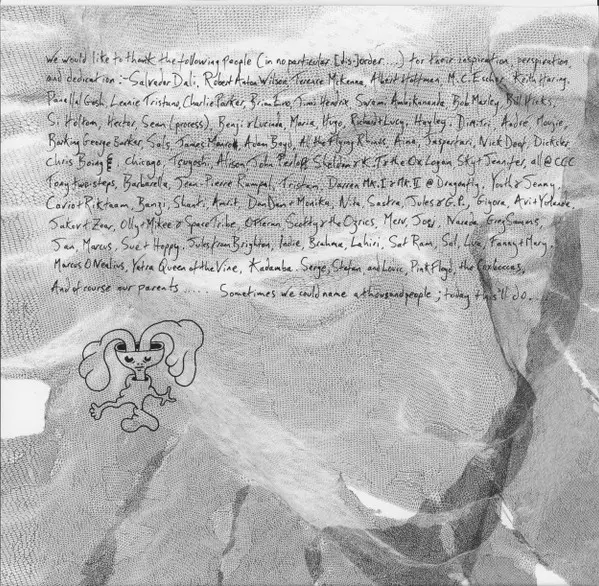 we would like to thank the following people (in no particular Edis-]order....) for their inspiration, perspiration,
and dedication :- Salvador Dali, Robert Anton Wilson, Terence McKenna, Albert Hoffman, M.C. Escher, Keith Haring,
Parallel Gosh, Leonie Tristano, Charlie Parker, Brian Eno, Jimi Hendrix, Swami Ambikananda, Bob Marley, Bill Hicks,
Si Holtom, Hector Sean (process), Benji & Lucinda, Maria, Hugo, Richard & Lucy, Hayley, Dimitri, Andre, Mougie,
Barking George Barker, Sols, James Monro, Adam Boyd, All the Flying Rhinos, Aina, Jaspertari, Nick Deaf, Dickster
Chris Boing, Chicago, Tsuyoshi, Alison, John Perloff, Sheldon & K.I & the Ox Logan, Sky & Jennifer, all @ CGC
Tony two-steps, Barbarella, Jean-Pierre Rampal, Tristam, Darren MK.I & MK.II @ Dragonfly, Youth & Jenny,
Cario & Riktaam, Banzi, Shanti, Amrit, DamDam & Monika, Nita, Sastra, Jules & G.P., Giyora, Avi & Yolande,
Jakov & Zoar, Olly & Mikee & SpaceTribe, Otteran Scotty & the Ogries, Merv, Joey, Narada, Greg Samms,
Jan, Marcus, Sue & Hoppy, Jules from Brighton, Pedre, Brahma, Lahiri, Sat Ram, Sol, Liva, Fanny & Mary.
Marcus O'Nealius, Yatra Queen of the Vine, Kadamba, Serge, Stefan and Lovic, Pink Floyd, the Coxboccas,
And of course our parents ..... Sometimes we could name a thousand people ; today this'll do....